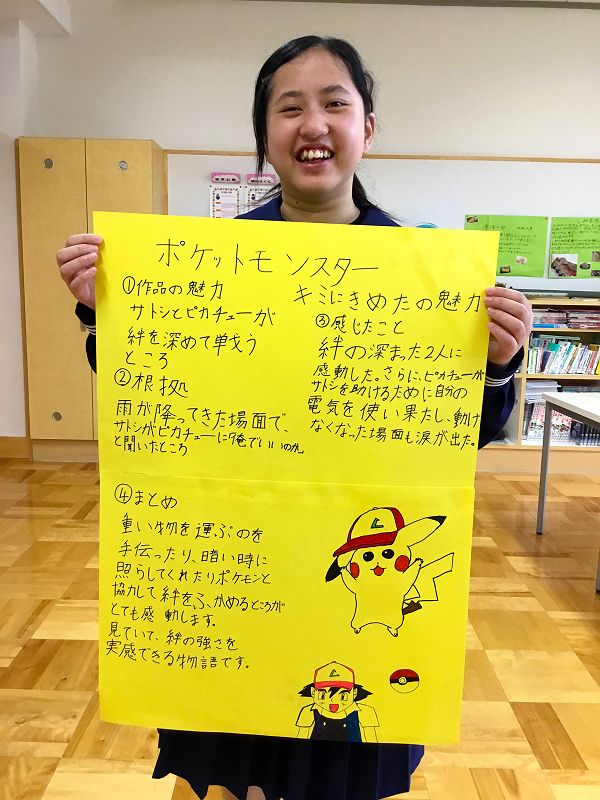 ポケットモンスター
キミにきめたの魅力
①作品の魅力
サトシとピカチューが
絆を深めて戦う
ところ
②根拠
雨が降ってきた場面で、
サトシがピカチューに「俺でいいのか」
と聞いたところ
③感じたこと
絆の深まった2人に
感動した。さらに、ピカチューが
サトシを助けるために自分の
電気を使い果たし、動け
なくなった場面も涙が出た。
④まとめ
重い物を運ぶのを
手伝ったり、暗い時に
照らしてくれたりポケモンと
協力して絆をふかめるところが
とても感動します。
見ていて、絆の強さを
実感できる物語です。